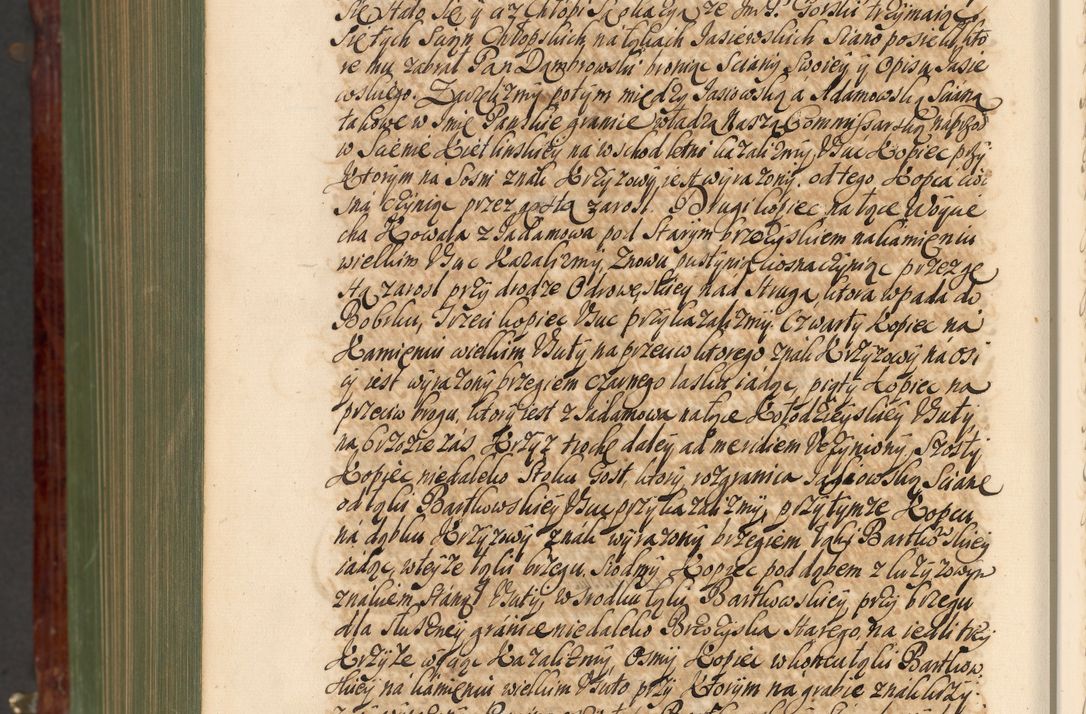 się stało, się y ciż Chłopi Skołaczą, że JmP. Gorski trzymaiąc
się tych Scian Chłopskich, na łąkach Jasiewskich Siano posiekł, kto
re mu zabrał Pan Dąmbrowski broniąc Sciany Swoiey y Opisu Jasie
wskiego. Zaczęlizmy potym między Jasiowską a Adamowską Scianą
takowe w Imię Panskie granice władzą Naszą Commissarską, naprzod
w Sciemie Kietlinskiey na wschod letni kazalizmy Usuc Kopiec przy
Ktorym na Sosni znak Krzyzowy iest wyrazony, od tego Kopca cios
na czyniąc przez gęstą zarosl. Drugi kopiec na łące Woycie
cha Kowala z Jadamowa pod Starym brzezyskiem na kamieniu
wielkim Usuc Kazalizmy, Znowu pustynią ciosna czyniąc przez gę
stą zarosl przy drodze Odrowęskiey nad Strugą, ktora wpada do
Bobrku, Trzeci kopiec Usuc przykazalizmy. Czwarty kopiec na
Kamieniu wielkim Usuty na przeciw ktorego znak Krzyzowy na osi
cy iest wyrazony brzegiem czarnego lasku iadąc, piąty Kopiec na
przeciw brogu, ktory iest z Jadamowa na łące Kołodzieyskiey Usuty,
na brzozie zas Krzyz trochę daley ad meridiem Uczyniony, Szosty
Kopiec niedaleko Stoku Gost, ktory rozgranica Jasiowską Scianę
od łąki Bartkowskiey Usuc przykazalizmy, przytymze Kopcu
na dębku Krzyzowy znak wyrazony brzegiem łąki Bartkowskiey
iadąc, w teyze łąki brzegu. Siodmy Kopiec pod dębem z krzyzowym
znakiem Stanął Usuty, w srodku łąki Bartkowskiey, przy brzegu
dla słuszney granice niedaleko Brzezyska Starego, na iedli trzy
Krzyze wyciąc Kazalizmy, Osmy Kopiec w koncu łąki Bartkow
skiey na kamieniu wielkim Usuto przy Ktorym na grabie znak krzy-